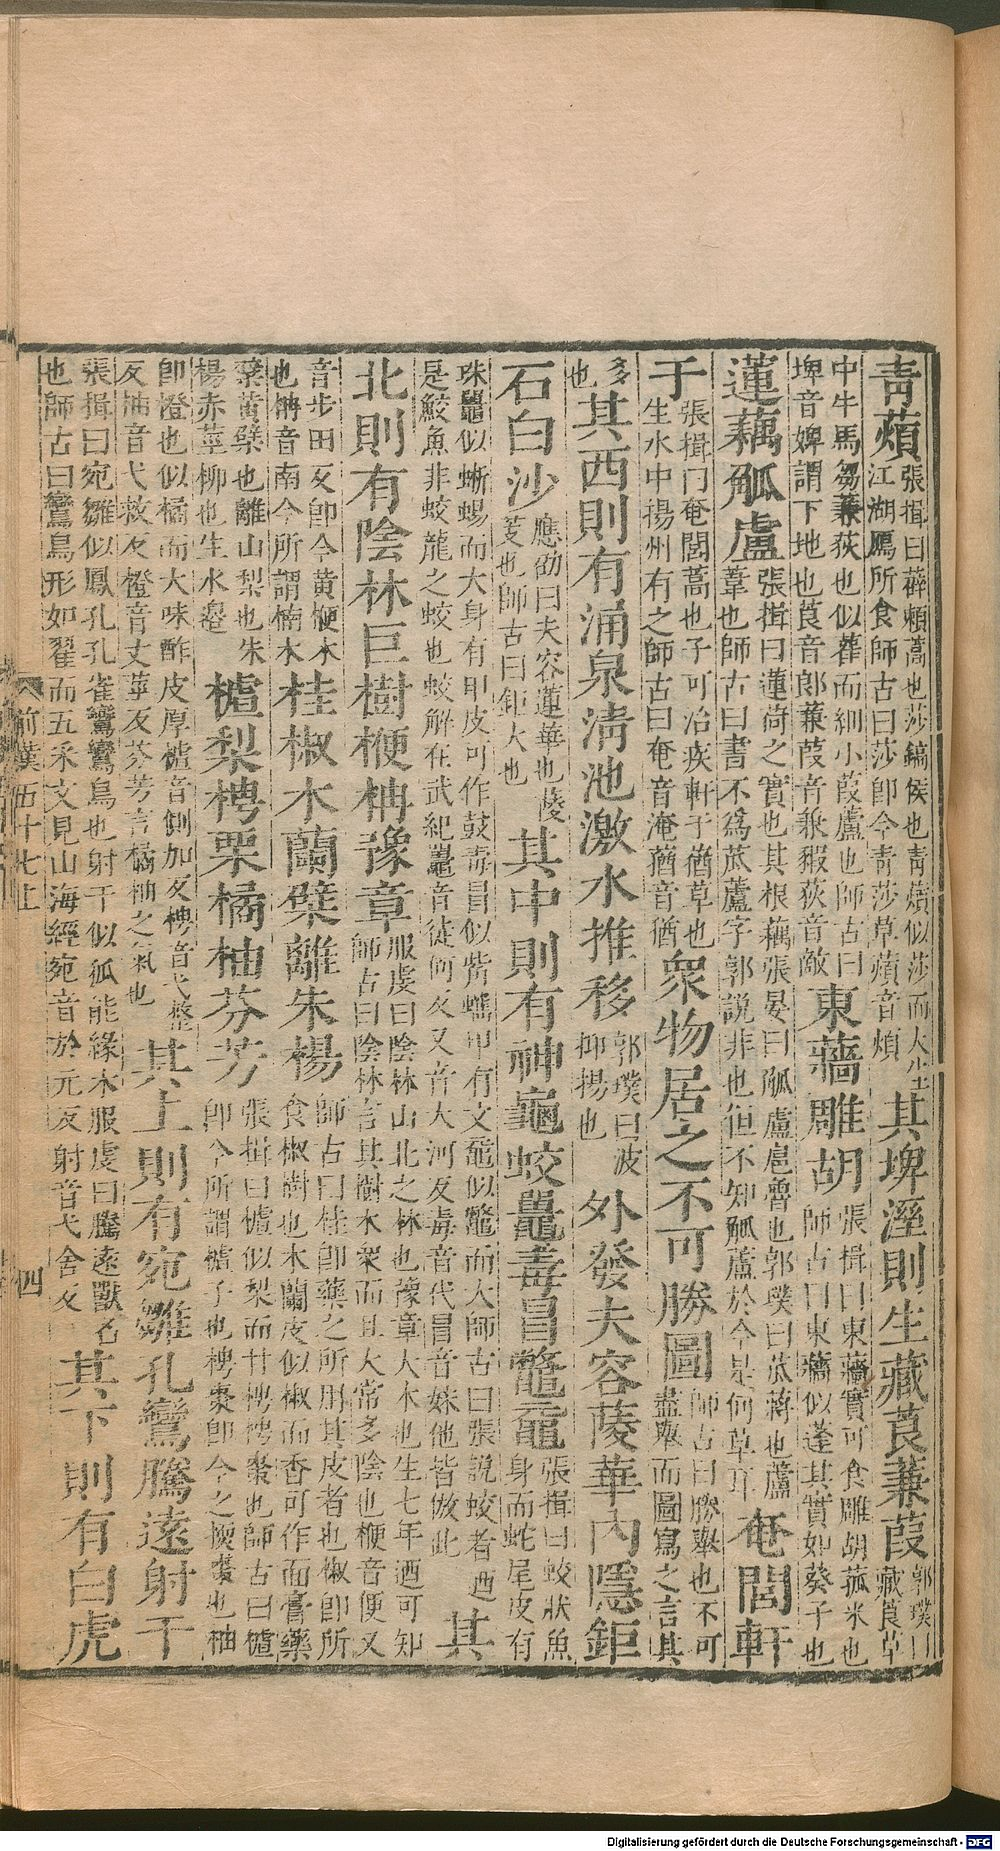 青薠張揖曰薛賴蒿也莎鎬侯也青薠似莎而大生江湖鴈所食師古曰莎即今青莎草薠音煩其埤溼則生藏莨蒹葭郭璞曰藏莨草
中牛馬芻蒹荻也似雚而細小葭蘆也師古曰埤音婢謂下地也莨音郎蒹葭音兼猳荻音敵東蘠雕胡張揖曰東蘠實可食雕胡菰米也師古曰東蘠似蓬其實如葵子也
蓮藕觚盧張揖曰蓮荷之實也其根藕張晏曰觚盧扈魯也郭璞曰菰蔣也蘆葦也師古曰書不爲菰蘆字郭說非也但不知觚蘆於今是何草耳奄閭軒
于張揖曰奄閭蒿也子可治疾軒于蕕草也生水中揚州有之師古曰奄音淹蕕音猶衆物居之不可勝圖師古曰勝舉也不可盡舉而圖寫之言其
多也其西則有涌泉清池激水推移郭璞曰波抑揚也外發夫容蔆華內隱鉅
石白沙應劭曰夫容蓮華也蔆芰也師古曰鉅大也其中則有神龜蛟鼉毒冒鼈黿張揖曰蛟狀魚身而蛇尾皮有
珠鼉似蜥蜴而大身有甲皮可作鼓毒冒似觜蠵甲有文黿似鼈而大師古曰張說蛟者迺是鮫魚非蛟龍之蛟也蛟解在武紀鼉音徒何反又音大河反毒音代冒音妹他皆倣此其
北則有陰林巨樹楩柟豫章服虔曰陰林山北之林也豫章大木也生七年迺可知師古曰陰林言其樹木衆而且大常多陰也楩音便又
音步田反即今黃楩木也柟音南今所謂楠木桂椒木蘭檗離朱楊師古曰桂即藥之所用其皮者也椒即所食椒樹也木蘭皮似椒而香可作面膏藥
檗黃檗也離山梨也朱楊赤莖柳也生水邊樝梨梬栗橘柚芬芳張揖曰樝似梨而甘梬梬棗也師古曰樝即今所謂樝子也梬棗即今之㮕棗也柚
即橙也似橘而大味酢皮厚樝音側加反梬音弋整反柚音弋救反橙音丈莖反芬芳言橘柚之氣也其上則有宛雛孔鸞騰遠射干
張揖曰宛雛似鳳孔孔雀鸞鸞鳥也射干似狐能緣木服虔曰騰遠獸名也師古曰鸞鳥形如翟而五采文見山海經宛音於元反射音弋舍反其下則有白虎
前漢五十七上 四
Digitalisierung gefördert durch die Deutsche Forschungsgemeinschaft - DFG